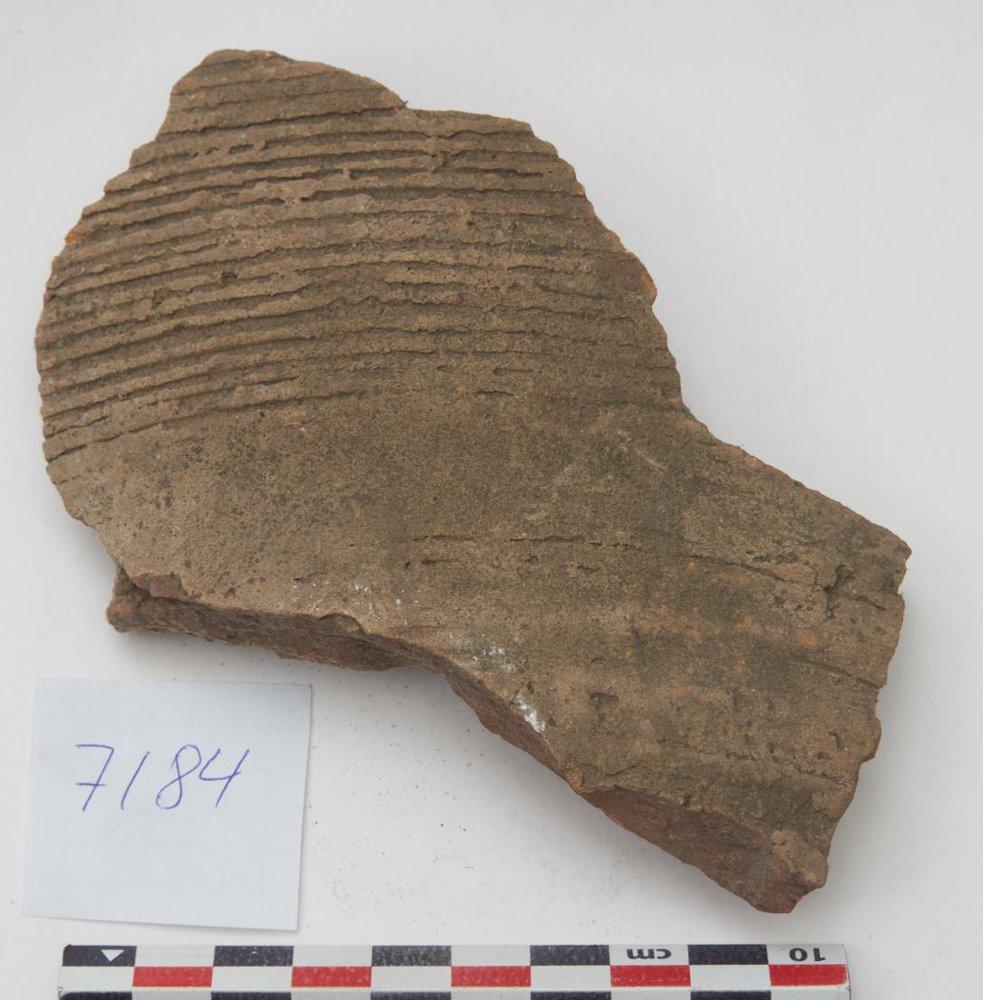 7184
cm 10